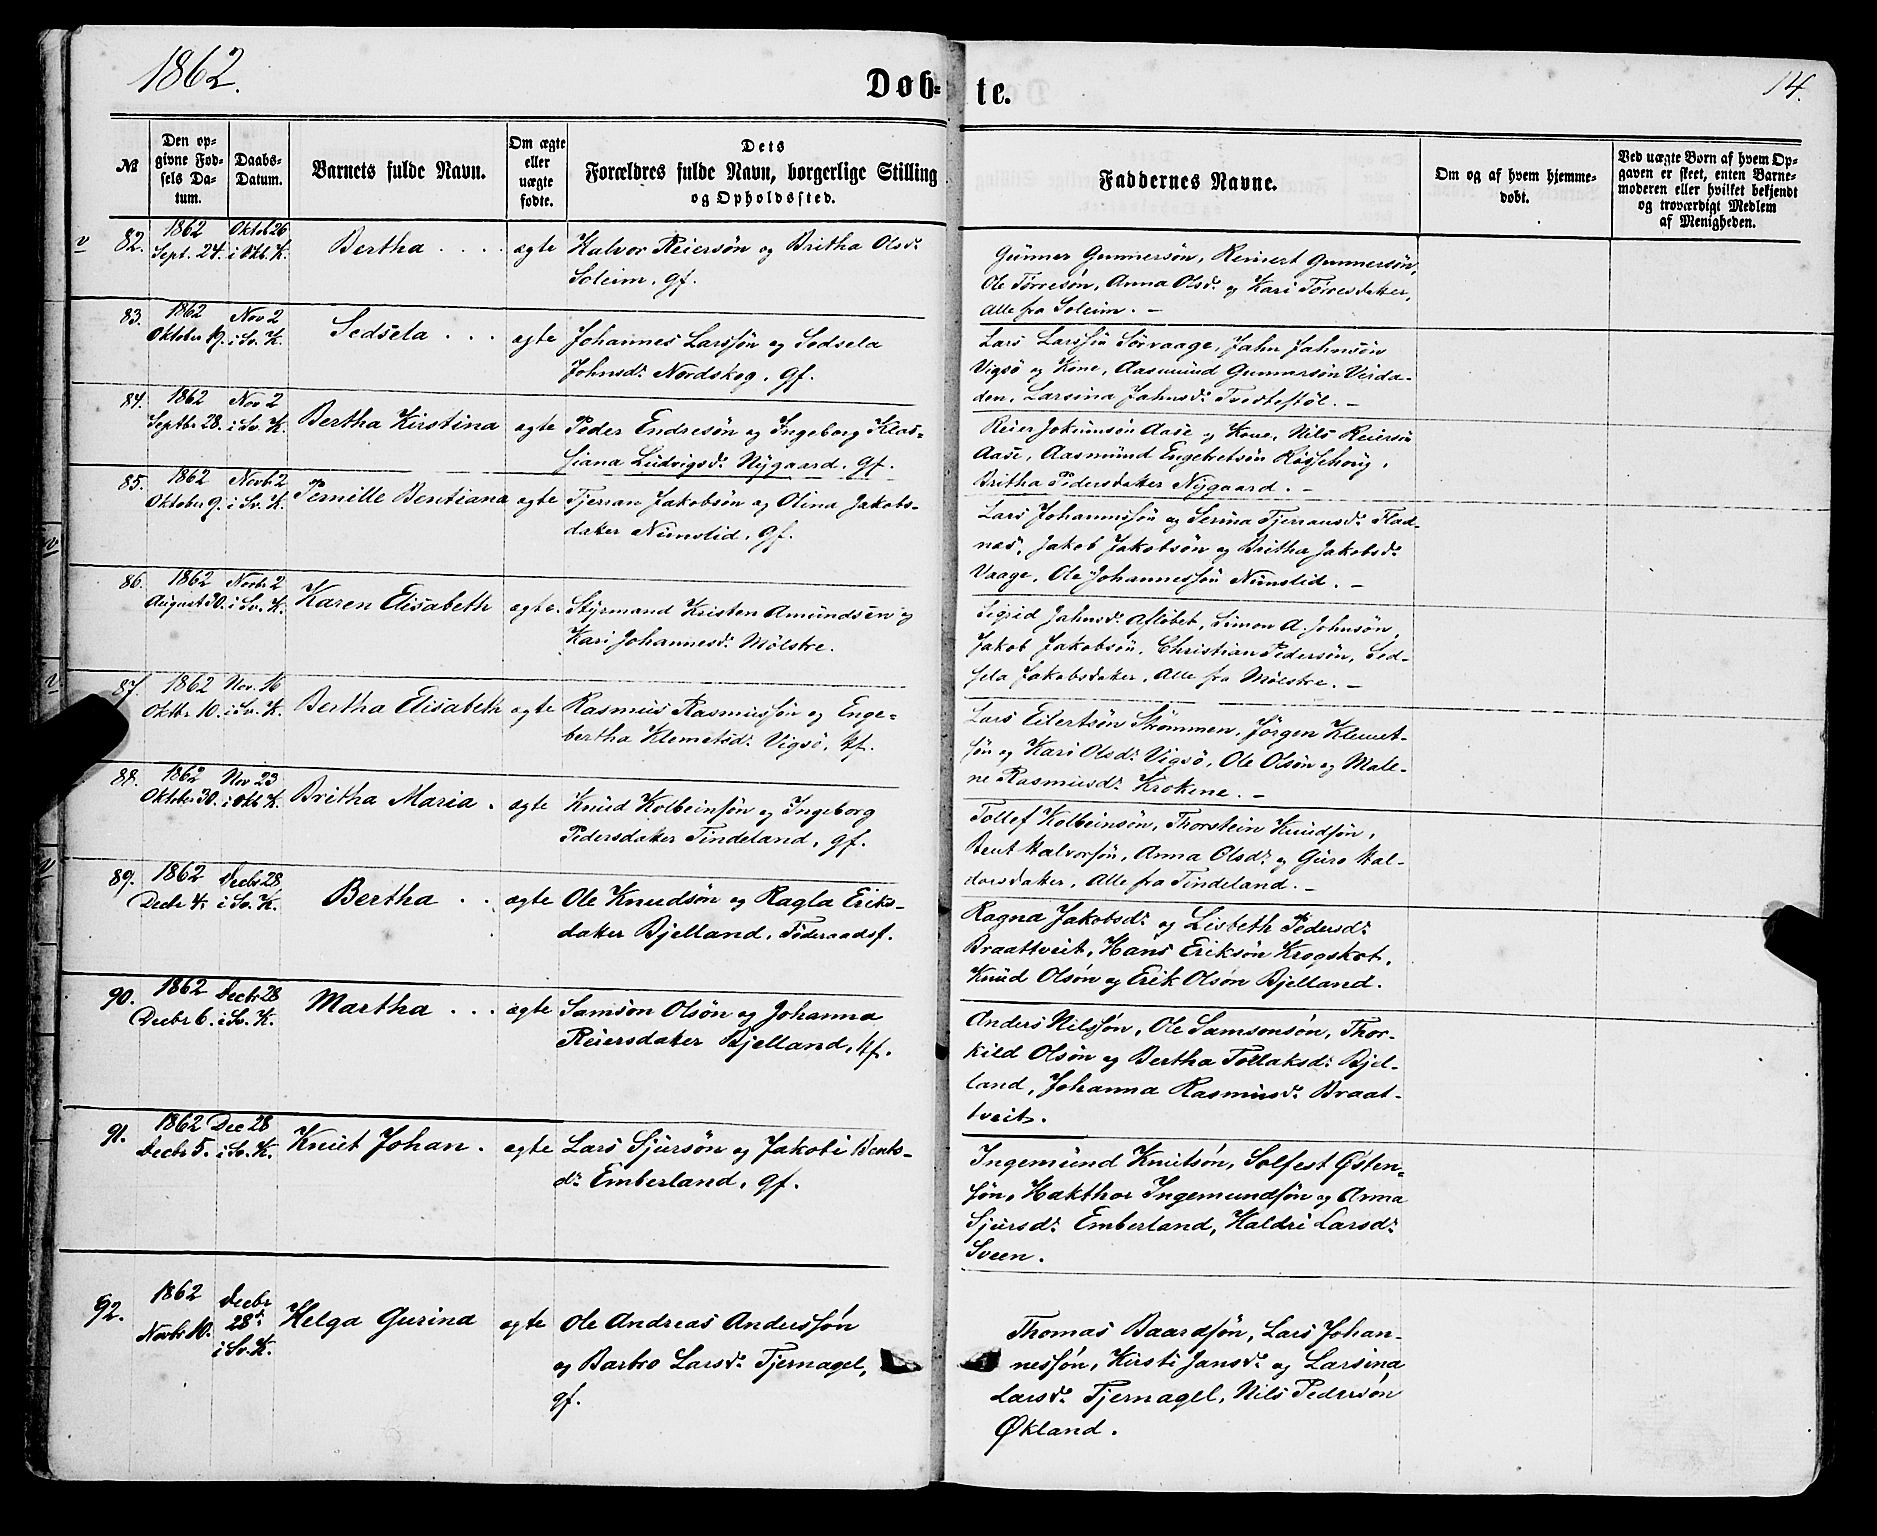 1862.
Døb-
te.
14.
№
Den op-
givne Fød-
sels Da-
tum.
Daabs-
Datum.
Barnets fulde Navn.
Om ægte
eller
uægte
fødte.
Dets
Forældres fulde Navn, borgerlige Stilling
og Opholdssted.
Faddernes Navne.
Om og af hvem hjemme-
døbt.
Ved uægte Børn af hvem Op-
gaven er skeet, enten Barne-
moderen eller hvilket bekjendt
og troværdigt Medlem
af Menigheden.
v 82. 1862 Oktob 26
Sept. 24. i Økl. K. Bertha . . . . ægte Halvor Reiersøn og Britha Olsdr
Soleim. gf.
Gunner Gunnersøn, Reinert Gunnersøn,
Ole Tørresøn, Anna Olsdr og Kari Tørresdatter,
alle fra Soleim. -
83. 1862 Nov 2
Oktober 19. i Sv. K. Sedsela . . . ægte Johannes Larssøn og Sedsela
Johnsdr Nordskog. gf.
Lars Larssøn Sørvaage, Jahn Jahnsøn
Vigsø og Kone, Aasmund Gunnarsøn Vikda-
den, Larsina Jahnsdr Tvedtestøl. -
84. 1862 Nov 2
Septbr 28. i Sv. K. Bertha Kirstina ægte Peder Endresøn og Ingeborg Klas-
siana Ludvigsdr Nygaard. gf.
Reier Jokumsøn Aase og Kone, Nils Reiersøn
Aase, Aasmund Engebretsøn Røssehoug,
Britha Pedersdatter Nygaard. -
85. 1862 Novb 2
Oktober 9. i Sv. K. Pernille Bentiana ægte Tjeran Jakobsøn og Olina Jakobs-
datter Nunslid. gf.
Lars Johannssøn og Serina Tjeransdr Flad-
nes, Jakob Jakobsøn og Britha Jakobsdr
Vaage, Ole Johannessøn Nunslid. -
86. 1862 Novbr 2
August 30. i Sv. K. Karen Elisabeth ægte. Styrmand Kristen Amundsen og
Kari Johannesdr Mølstre.
Sigrid Jahnsdr Afløbet, Simon A. Johnsøn,
Jakob Jakobsøn, Christian Pedersøn, Sed-
sela Jakobsdatter, alle fra Mølstre. -
87. 1862 Nov. 16
Oktbr 10. i Sv. K. Bertha Elisabeth ægte Rasmus Rasmussøn og Enge-
bertha Klemetsdr Vigsø, Hf.
Lars Eilertsøn Strømmen, Jørgen Klemet-
søn og Kari Olsdr Vigsø, Ole Olsøn og Male-
ne Rasmusdr Krokene. -
88. 1862 Nov 23
Oktober 30. i Økl K. Britha Maria . ægte Knud Kolbeinsøn og Ingeborg
Pedersdatter Tindeland, gf.
Tollef Kolbeinsøn, Thorstein Knudsøn,
Bent Halvorsøn, Anna Olsdr og Guro Hal-
dorsdatter, alle fra Tindeland. -
89. 1862 Decbr 28,
Decbr 4. i Sv. K. Bertha . . ægte Ole Knudsøn og Ragla Eriks-
datter Bjelland, Føderaadsf.
Ragna Jakobsdr og Lisbeth Pedersdr
Braattveit, Hans Eriksøn Krogskot,
Knud Olsøn og Erik Olsøn Bjelland.
90. 1862 Decbr 28
Decbr 6. i Sv. K. Martha . . . ægte Samson Olsøn og Johanna
Reiersdatter Bjelland, Hf.
Anders Nilssøn, Ole Samsonsøn, Thor-
kild Olsøn og Bertha Tollaksdr Bjel-
land, Johanna Rasmusdr Braat-
tveit.
91. 1862 Dec 28
Decbr 5. i Sv. K. Knut Johan . ægte Lars Sjursøn og Jakobi Bents-
dr Emberland, gf.
Ingemund Knutsøn, Solfest Østen-
søn, Hakthor Ingemundsøn og Anna
Sjursdr Emberland, Haldri Larsdr
Sveen.
92. 1862 Decbr
28de
Novbr 10. i Sv. K. Helga Gurina ægte Ole Andreas Anderssøn
og Barbro Larsdr Tjernagel,
gf.
Thomas Baardsøn, Lars Johan-
nessøn, Kirsti Jansdr og Larsina
Larsdr Tjernagel, Nils Pedersøn
Økland.